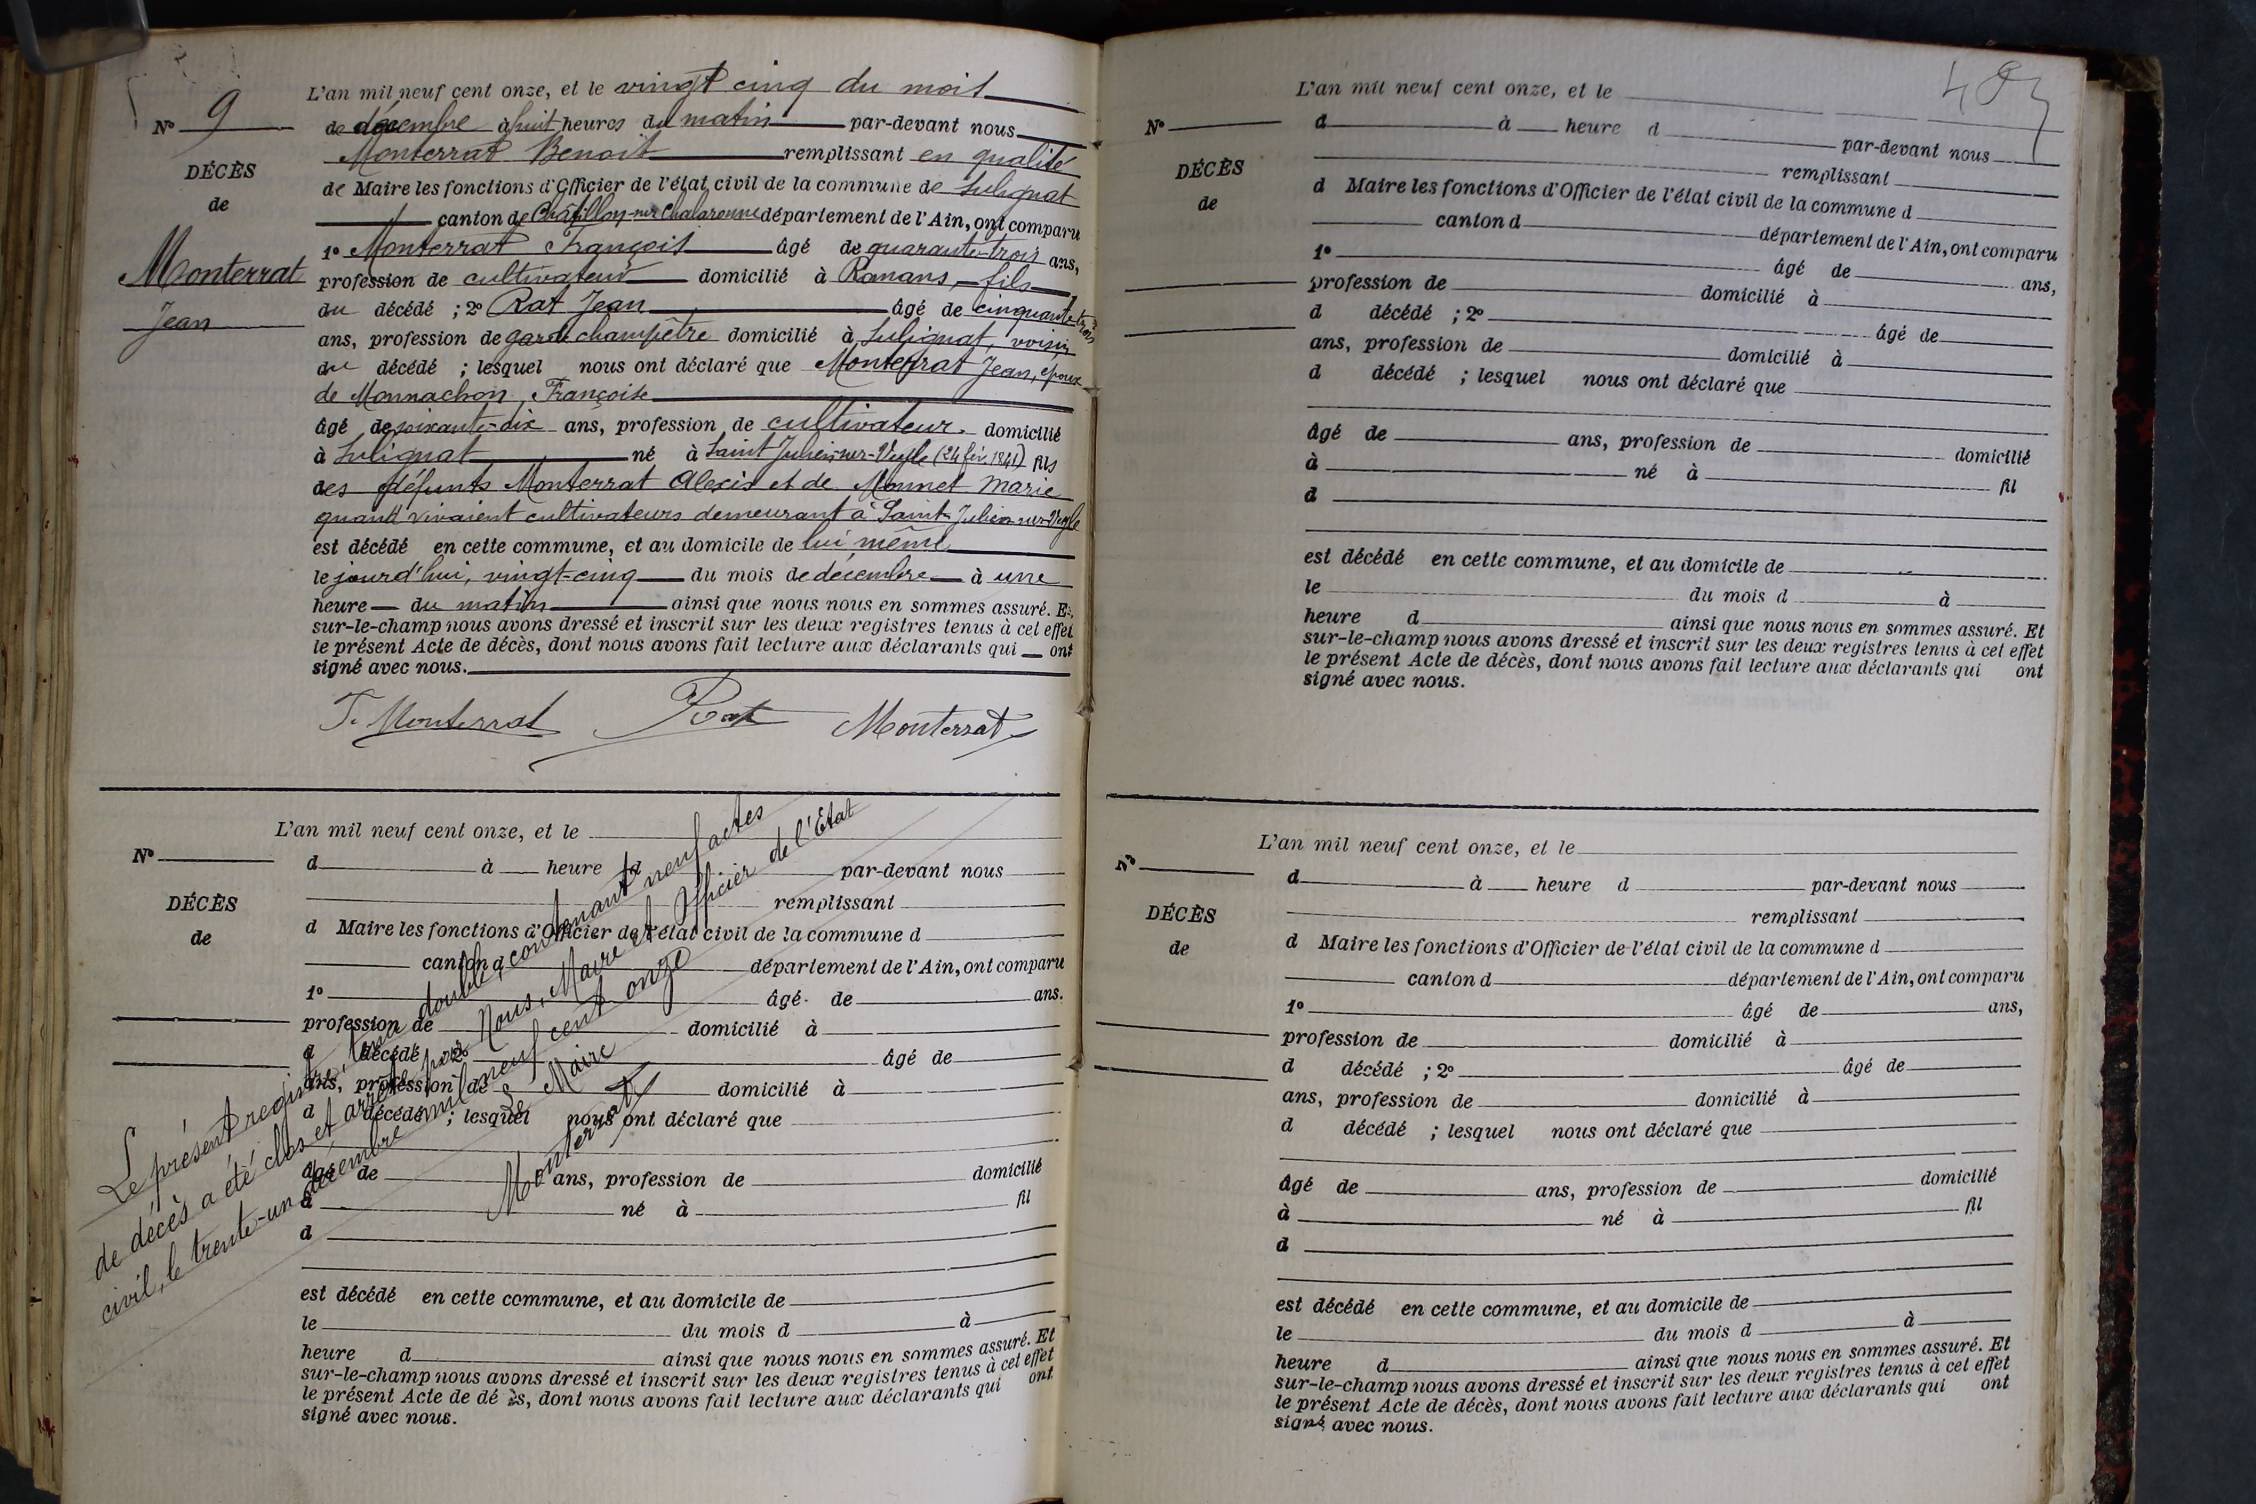 L'an mil neuf cent onze, et le vingt cinq du mois
N° 9
de décembre à huit heures du matin par-devant nous
Monterrat Benoit remplissant en qualité
DÉCÈS
de Maire les fonctions d'Officier de l'état civil de la commune de Sulignat
de
canton de Châtillon-sur-Chalaronne département de l'Ain, ont comparu
1° Monterrat François âgé de quarante-trois ans,
Monterrat
profession de cultivateur domicilié à Romans, fils
Jean
du décédé ; 2° Rat Jean âgé de cinquante-trois
ans, profession de garde champêtre domicilié à Sulignat, voisin
du décédé ; lesquel nous ont déclaré que Monterrat Jean, époux
de Monnachon Françoise
âgé de soixante-dix ans, profession de cultivateur domicilié
à Sulignat né à Saint Julien-sur-Veyle (24 fév. 1841) fils
des défunts Monterrat Alexis et de Monnet Marie
quand vivaient cultivateurs demeurant à Saint-Julien-sur-Veyle
est décédé en cette commune, et au domicile de lui même
le jourd'hui, vingt-cinq du mois de décembre à une
heure du matin ainsi que nous nous en sommes assuré. Et
sur-le-champ nous avons dressé et inscrit sur les deux registres tenus à cet effet
le présent Acte de décès, dont nous avons fait lecture aux déclarants qui ont
signé avec nous.
F. Monterrat Rat Monterrat
L'an mil neuf cent onze, et le
N°
d à heure d par-devant nous
remplissant
DÉCÈS
d Maire les fonctions d'Officier de l'état civil de la commune d
de
canton d département de l'Ain, ont comparu
1° âgé de ans.
profession de domicilié à
d décédé ; 2° âgé de
ans, profession de domicilié à
d décédé ; lesquel nous ont déclaré que
âgé de ans, profession de domicilié
à né à fil
d
est décédé en cette commune, et au domicile de
le du mois d à
heure d ainsi que nous nous en sommes assuré. Et
sur-le-champ nous avons dressé et inscrit sur les deux registres tenus à cet effet
le présent Acte de dé ès, dont nous avons fait lecture aux déclarants qui ont
signé avec nous.
Le présent registre, tenu double, contenant neuf actes
de décès a été clos et arrêté par Nous, Maire et Officier de l'Etat
civil, le trente-un décembre mil neuf cent onze
Le Maire
Monterrat
L'an mil neuf cent onze, et le
N°
d à heure d par-devant nous
remplissant
DÉCÈS
d Maire les fonctions d'Officier de l'état civil de la commune d
de
canton d département de l'Ain, ont comparu
1° âgé de ans,
profession de domicilié à
d décédé ; 2° âgé de
ans, profession de domicilié à
d décédé ; lesquel nous ont déclaré que
âgé de ans, profession de domicilié
à né à fil
d
est décédé en cette commune, et au domicile de
le du mois d à
heure d ainsi que nous nous en sommes assuré. Et
sur-le-champ nous avons dressé et inscrit sur les deux registres tenus à cet effet
le présent Acte de décès, dont nous avons fait lecture aux déclarants qui ont
signé avec nous.
L'an mil neuf cent onze, et le
N°
d à heure d par-devant nous
remplissant
DÉCÈS
d Maire les fonctions d'Officier de l'état civil de la commune d
de
canton d département de l'Ain, ont comparu
1° âgé de ans,
profession de domicilié à
d décédé ; 2° âgé de
ans, profession de domicilié à
d décédé ; lesquel nous ont déclaré que
âgé de ans, profession de domicilié
à né à fil
d
est décédé en cette commune, et au domicile de
le du mois d à
heure d ainsi que nous nous en sommes assuré. Et
sur-le-champ nous avons dressé et inscrit sur les deux registres tenus à cet effet
le présent Acte de décès, dont nous avons fait lecture aux déclarants qui ont
signé avec nous.